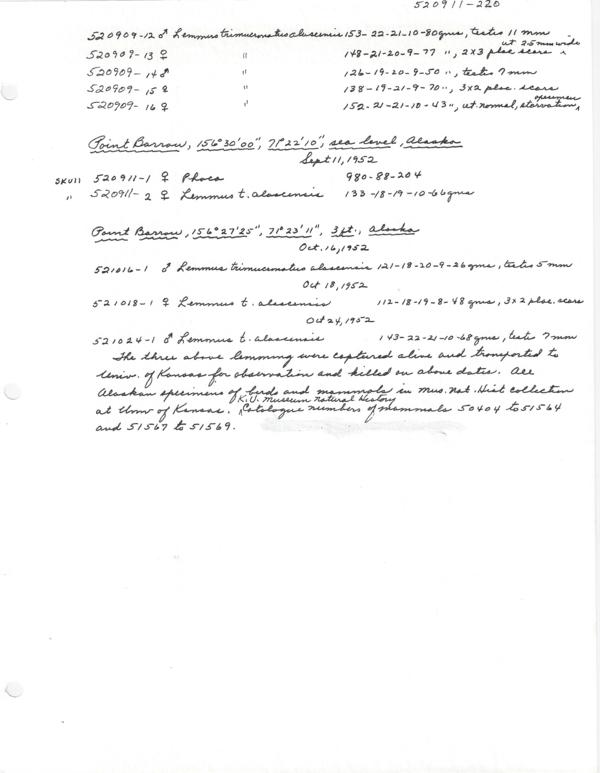 520911-220
520909-12 ♂ Lemmus trimucronatus alascensis 153-22-21-10-80gms, testis 11 mm
520909-13 ♀ " 148-21-20-9-77 ", 2x3 plac scars, ut 2.5 mm wide
520909-14 ♂ " 126-19-20-9-50 ", testis 7 mm
520909-15 ♀ " 138-19-21-9-70 ", 3x2 plac. scars
520909-16 ♀ " 152-21-21-10-43 ", ut. normal, starvation specimen
Point Barrow, 156°30'00", 71°22'10", sea level, Alaska
Sept 11, 1952
SKull 520911-1 ♀ Phoca 980-88-204
" 520911-2 ♀ Lemmus t. alascensis 133-18-19-10-66gms
Point Barrow, 156°27'25", 71°23'11", 3 ft., Alaska
Oct. 16, 1952
521016-1 ♂ Lemmus trimucronatus alascensis 121-18-20-9-26gms, testes 5 mm
Oct 18, 1952
521018-1 ♀ Lemmus t. alascensis 112-18-19-8-48 gms, 3x2 plac. scars
Oct 24, 1952
521024-1 ♂ Lemmus t. alascensis 143-22-21-10-68gms, testis 7mm
The three above lemmings were captured alive and transported to
Univ. of Kansas for observation and killed on above dates. All
Alaskan specimens of birds and mammals in Mus. Nat. Hist collection
at Univ of Kansas. K.U. Museum Natural History Catalogue numbers of mammals 50404 to 51564
and 51567 to 51569.